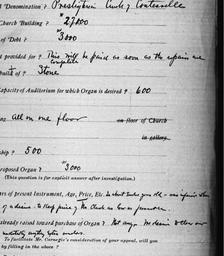 Denomination? Presbyterian Church of Coatesville
Church Building? $27,000
of Debt? $3000
provided for? This will be paid as soon as the repairs are
complete
built of? Stone
Capacity of Auditorium for which Organ is desired? 600
All on one floor on floor of Church
in gallery
ship? 500
proposed Organ? $3000
(This question is for explicit answer after investigation.)
ars of present Instrument, Age, Price, Etc.
already raised toward purchase of Organ? Not any. We desire
To facilitate Mr. Carnegie's consideration of your appeal, will you
by filling in the above?